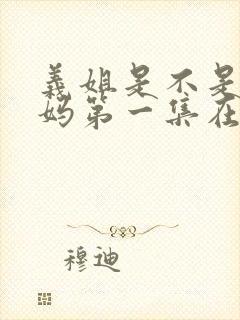 義姐是不是
妈第一集在
穆迪